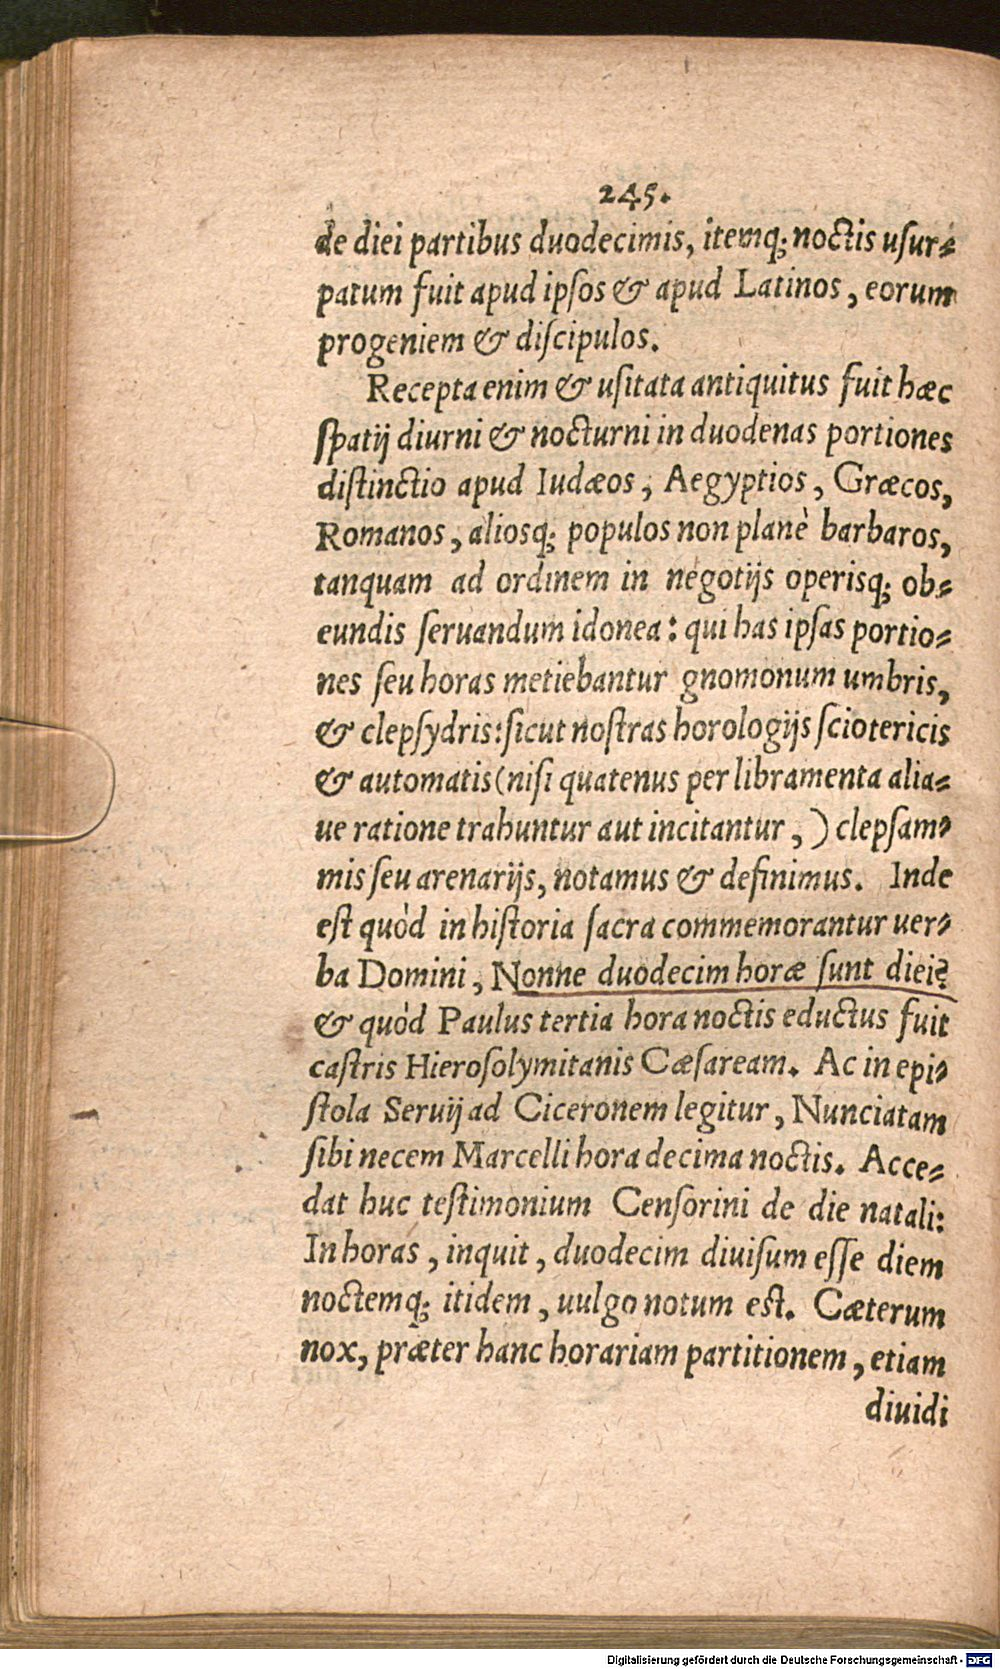 245.
de diei partibus duodecimis, itemq; noctis uſur-
patum fuit apud ipſos & apud Latinos, eorum
progeniem & diſcipulos.
Recepta enim & uſitata antiquitus fuit hæc
ſpatij diurni & nocturni in duodenas portiones
diſtinctio apud Iudæos, Aegyptios, Græcos,
Romanos, aliosq; populos non planè barbaros,
tanquam ad ordinem in negotijs operisq; ob-
eundis ſeruandum idonea: qui has ipſas portio-
nes ſeu horas metiebantur gnomonum umbris,
& clepſydris: ſicut noſtras horologijs ſciotericis
& automatis (niſi quatenus per libramenta alia-
ue ratione trahuntur aut incitantur,) clepſam-
mis ſeu arenarijs, notamus & definimus. Inde
eſt quòd in hiſtoria ſacra commemorantur uer-
ba Domini, Nonne duodecim horæ ſunt diei?
& quòd Paulus tertia hora noctis eductus fuit
caſtris Hieroſolymitanis Cæſaream. Ac in epi-
ſtola Seruij ad Ciceronem legitur, Nunciatam
ſibi necem Marcelli hora decima noctis. Acce-
dat huc teſtimonium Cenſorini de die natali:
In horas, inquit, duodecim diuiſum eſſe diem
noctemq; itidem, uulgo notum eſt. Cæterum
nox, præter hanc horariam partitionem, etiam
diuidi
Digitalisierung gefördert durch die Deutsche Forschungsgemeinschaft - DFG